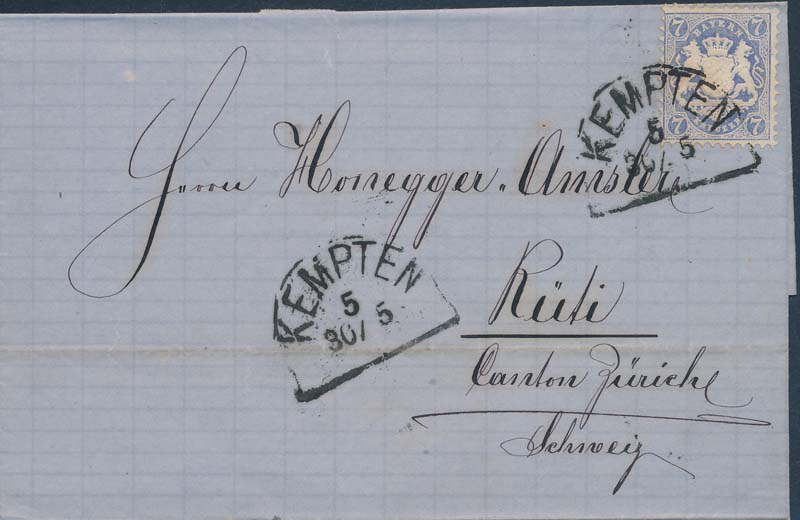 7 7
BAYERN
7 7
KEMPTEN
5
30/ 5
Herrn Honegger-Amsler
KEMPTEN
5
30/ 5
Rüti
Canton Zürich
Schweiz